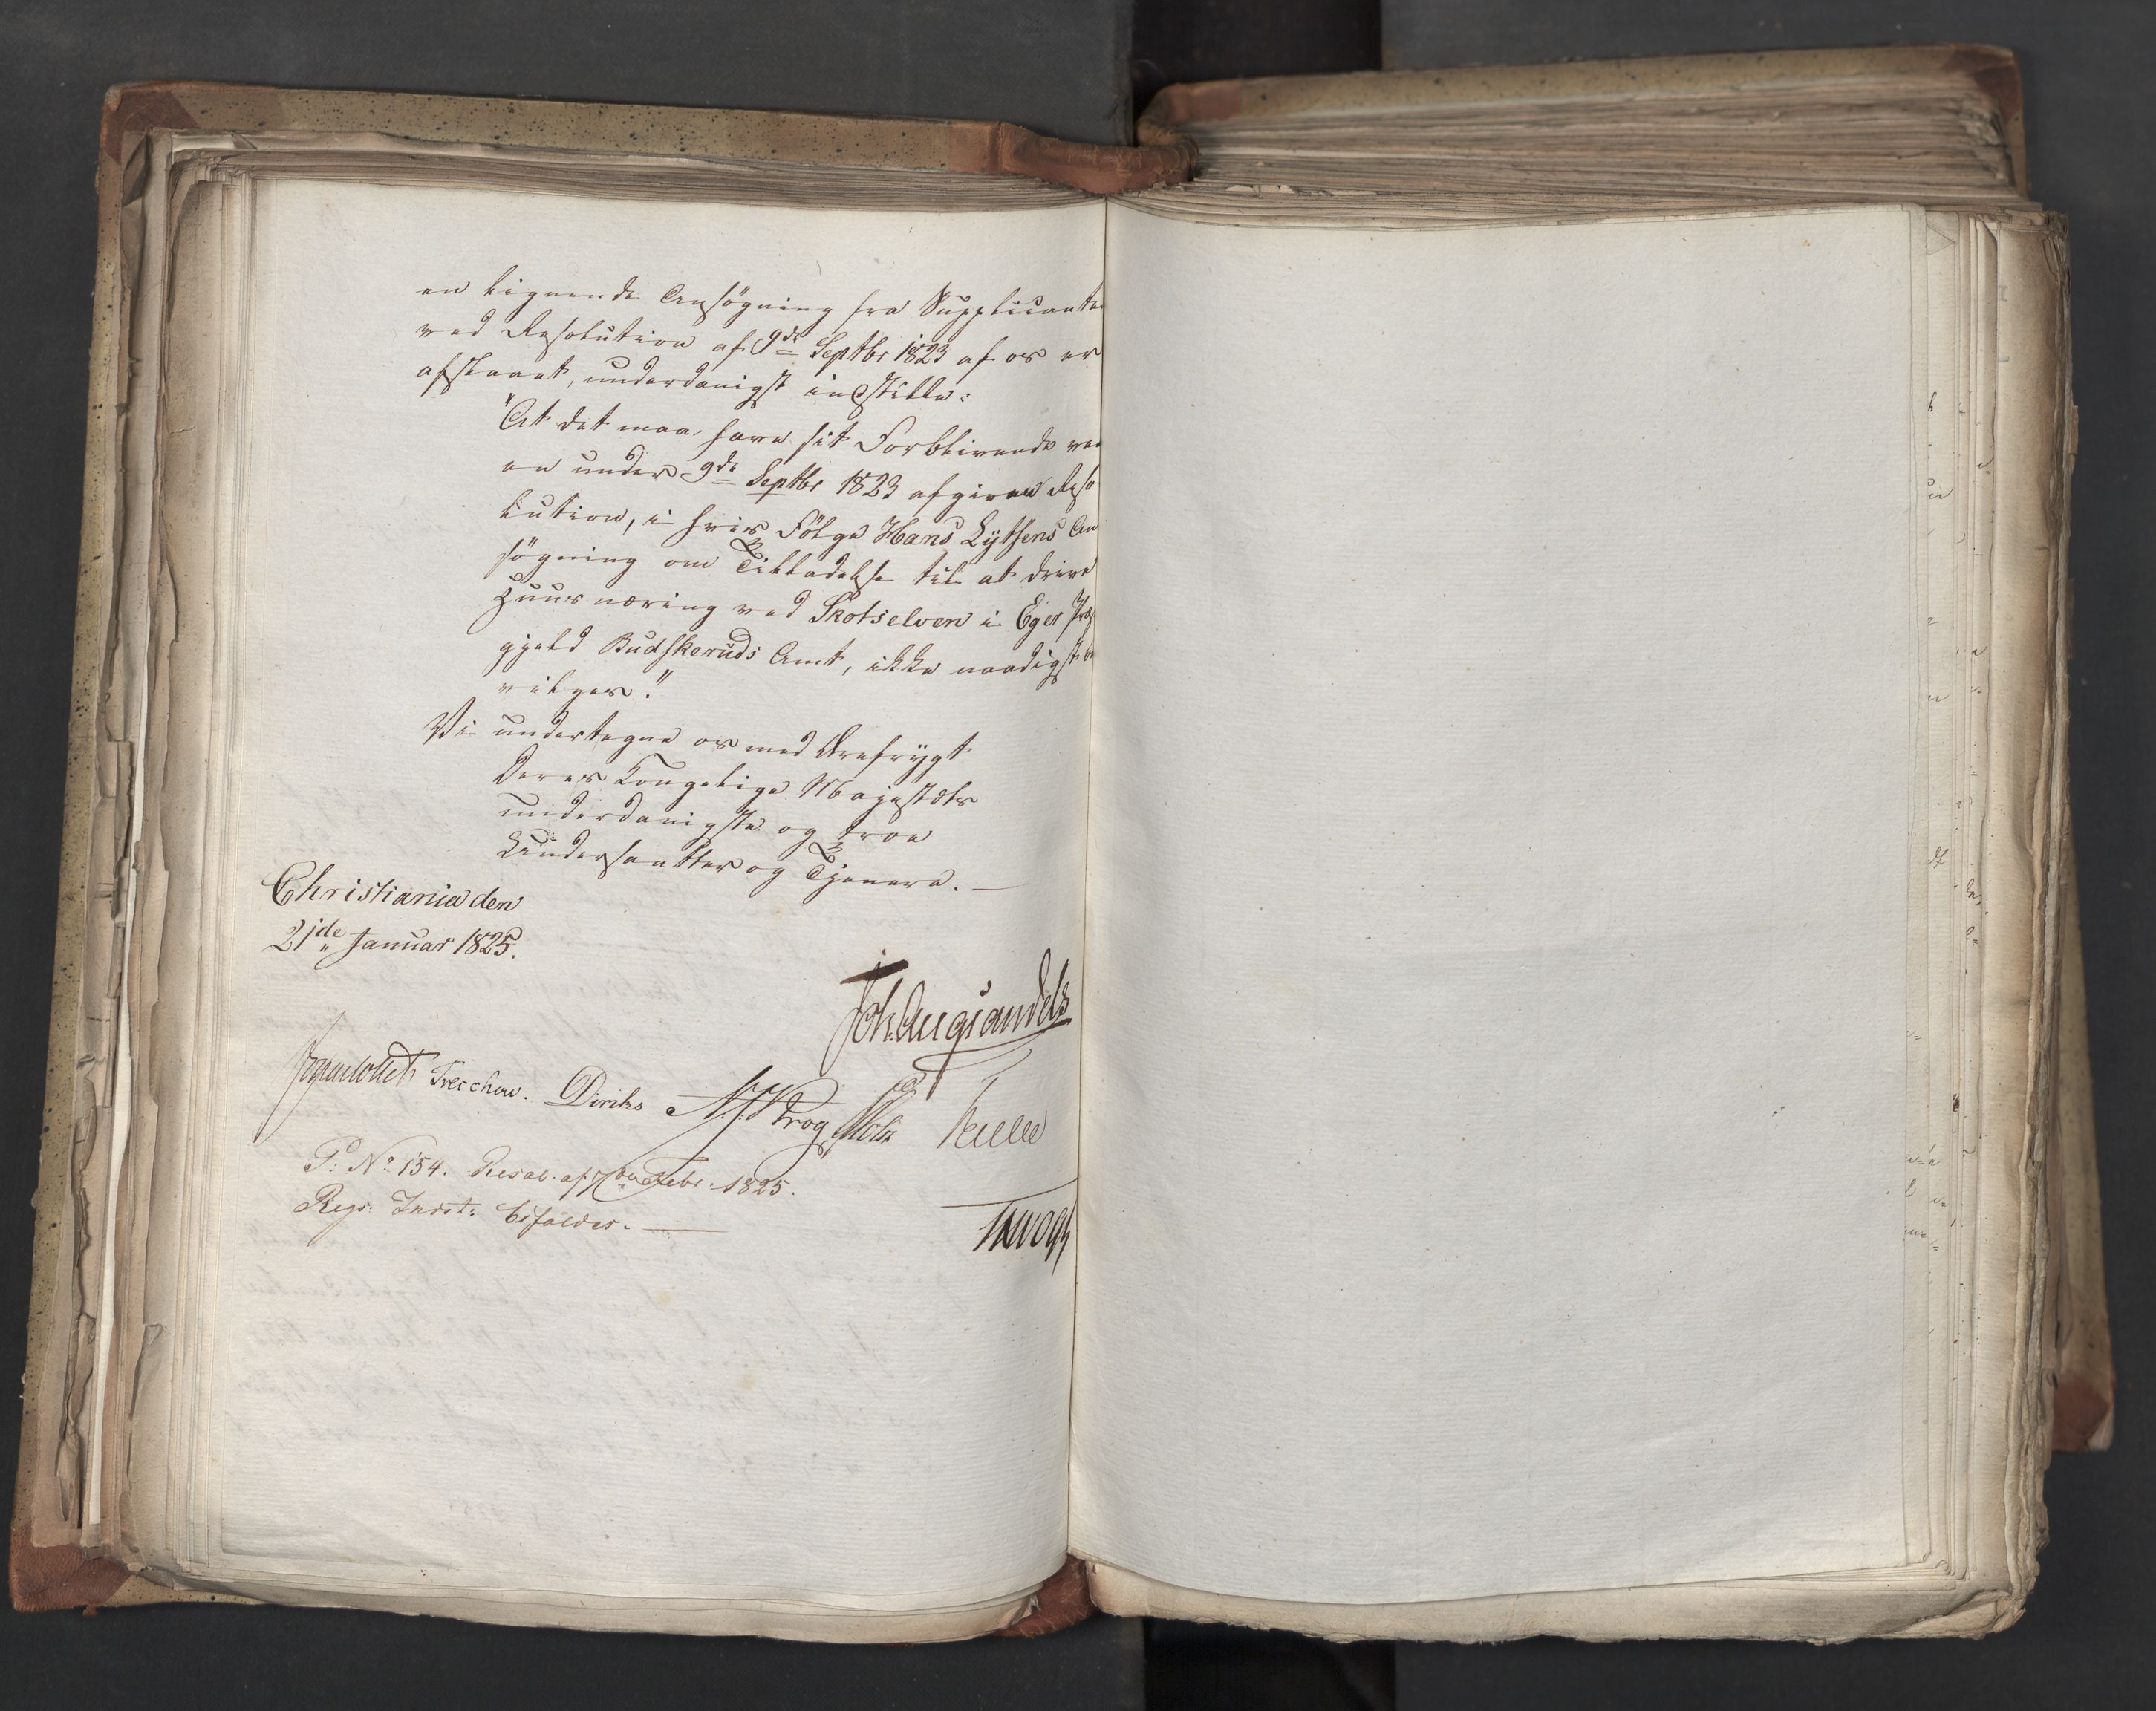 en lignende Ansögning fra Supplicanten
ved Resolution af 9de Septbr 1823 af os er
afslaaet, underdanigst indstille:
"At det maa have sit Forblivende ved
en under 9de Septbr 1823 afgiven Reso
lution, i hvis Fölge Hans Lytsens An
sögning om Tilladelse til at drive
Huusnæring ved Skotselven i Eger Præ
gjeld Budskeruds Amt, ikke naadigst be
vilges."
Vi undertegne os med Ærefrygt
Deres Kongelige Majestæts
underdanigste og troe
Undersaatter og Tjenere. —
Christiania den
21de Januar 1825.
Joh. Aug Sandels
Treschow. Diriks Krog
P: No 154. Resol. af Febr: 1825.
Regs. Indst: bifaldes. —